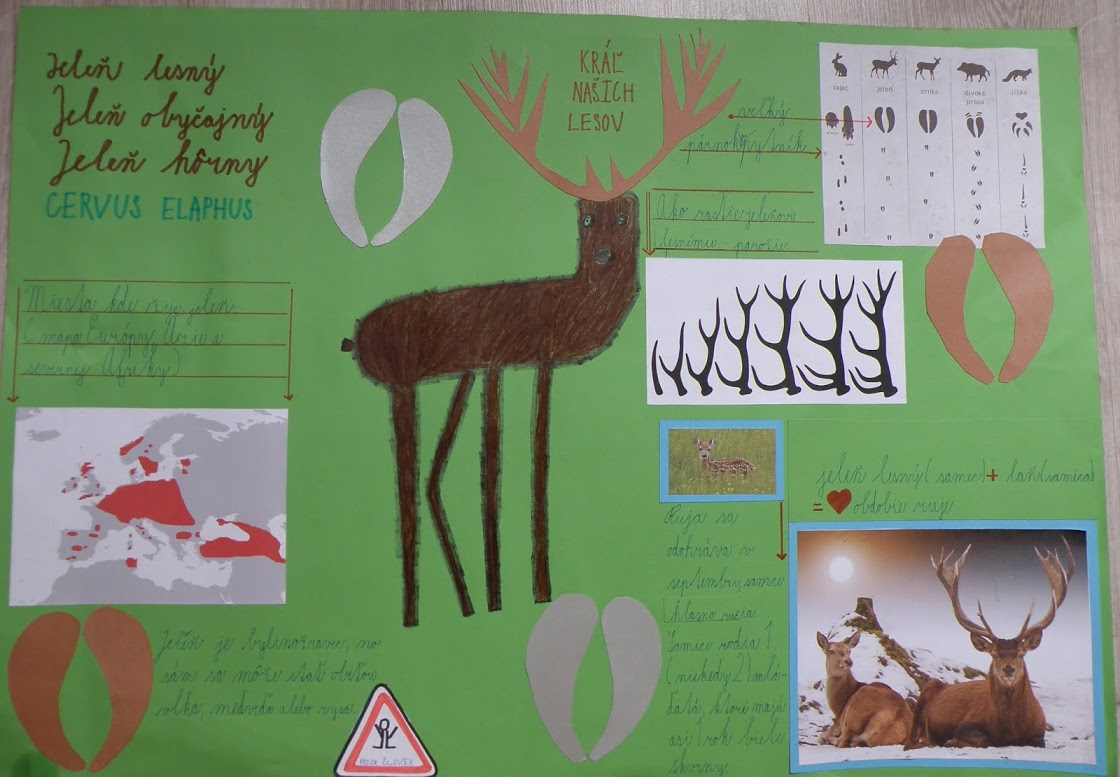 Jeleň lesný
Jeleň obyčajný
Jeleň hôrny
CERVUS ELAPHUS
KRÁĽ
NAŠICH
LESOV
veľký
párnokopytník
zajac
jeleň
srnka
divoké
prasa
líška
Ako rastie jeleňovi
lesnému parožie
Miesta kde žije jeleň
(mapa Európy, Ázie a
severnej Afriky)
jeleň lesný (samec) + laň (samica)
= obdobie ruje
Ruja sa
odohráva v
septembri, samce
hlasno ručia.
Samice rodia 1
(niekedy 2) mlá-
ďatá, ktoré majú
asi 1 rok biele
škvrny.
Jeleň je bylinožravec, no
sám sa môže stať obeťou
vlka, medveďa alebo rysa.
ČLOVEK